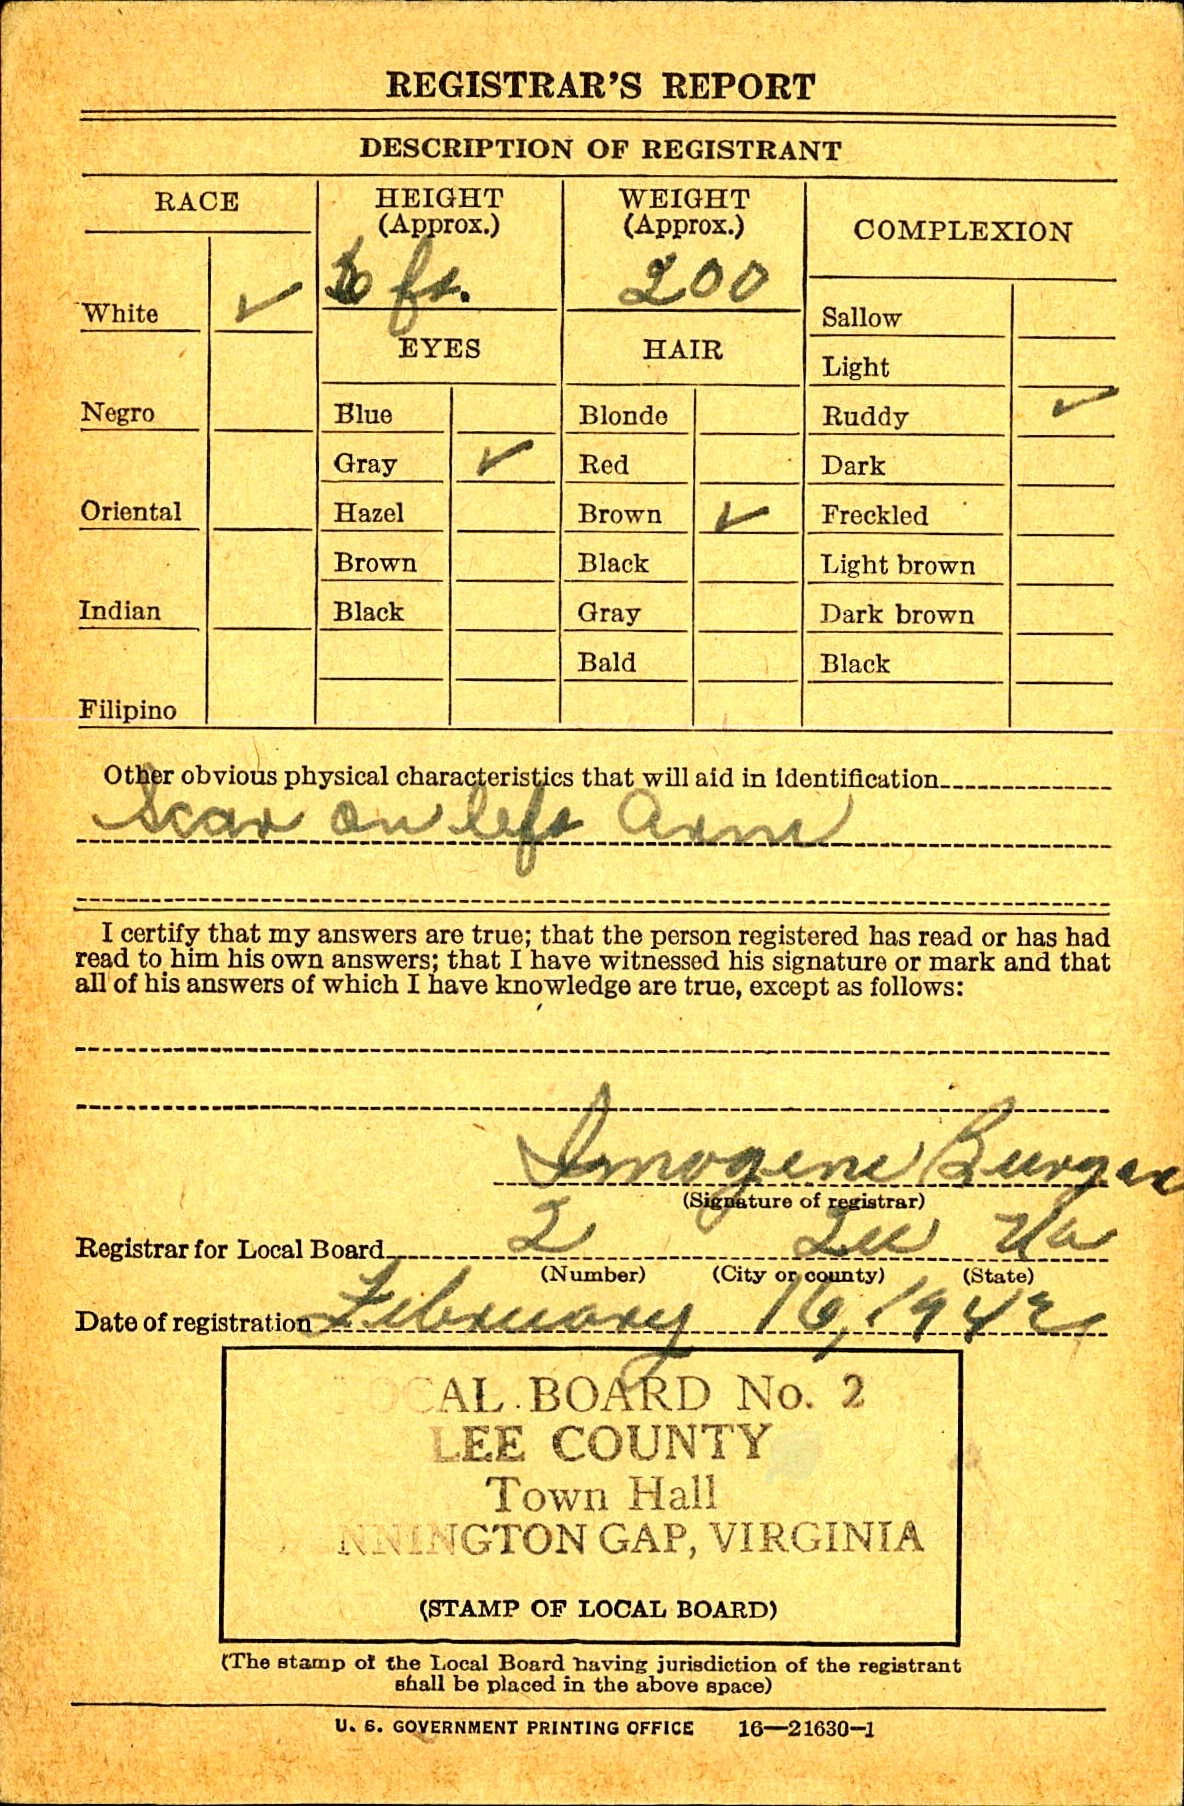 REGISTRAR'S REPORT
DESCRIPTION OF REGISTRANT
RACE
HEIGHT
(Approx.)
WEIGHT
(Approx.)
COMPLEXION
6 ft.
200
White ✓
EYES
HAIR
Sallow
Light
Negro
Blue
Blonde
Ruddy ✓
Gray ✓
Red
Dark
Oriental
Hazel
Brown ✓
Freckled
Brown
Black
Light brown
Indian
Black
Gray
Dark brown
Bald
Black
Filipino
Other obvious physical characteristics that will aid in identification
Scar on left Arm
I certify that my answers are true; that the person registered has read or has had
read to him his own answers; that I have witnessed his signature or mark and that
all of his answers of which I have knowledge are true, except as follows:
Imogene
(Signature of registrar)
Registrar for Local Board 2 Lee Va
(Number) (City or county) (State)
Date of registration February 16, 1942
LOCAL BOARD No. 2
LEE COUNTY
Town Hall
NNINGTON GAP, VIRGINIA
(STAMP OF LOCAL BOARD)
(The stamp of the Local Board having jurisdiction of the registrant
shall be placed in the above space)
U. S. GOVERNMENT PRINTING OFFICE 16—21630-1